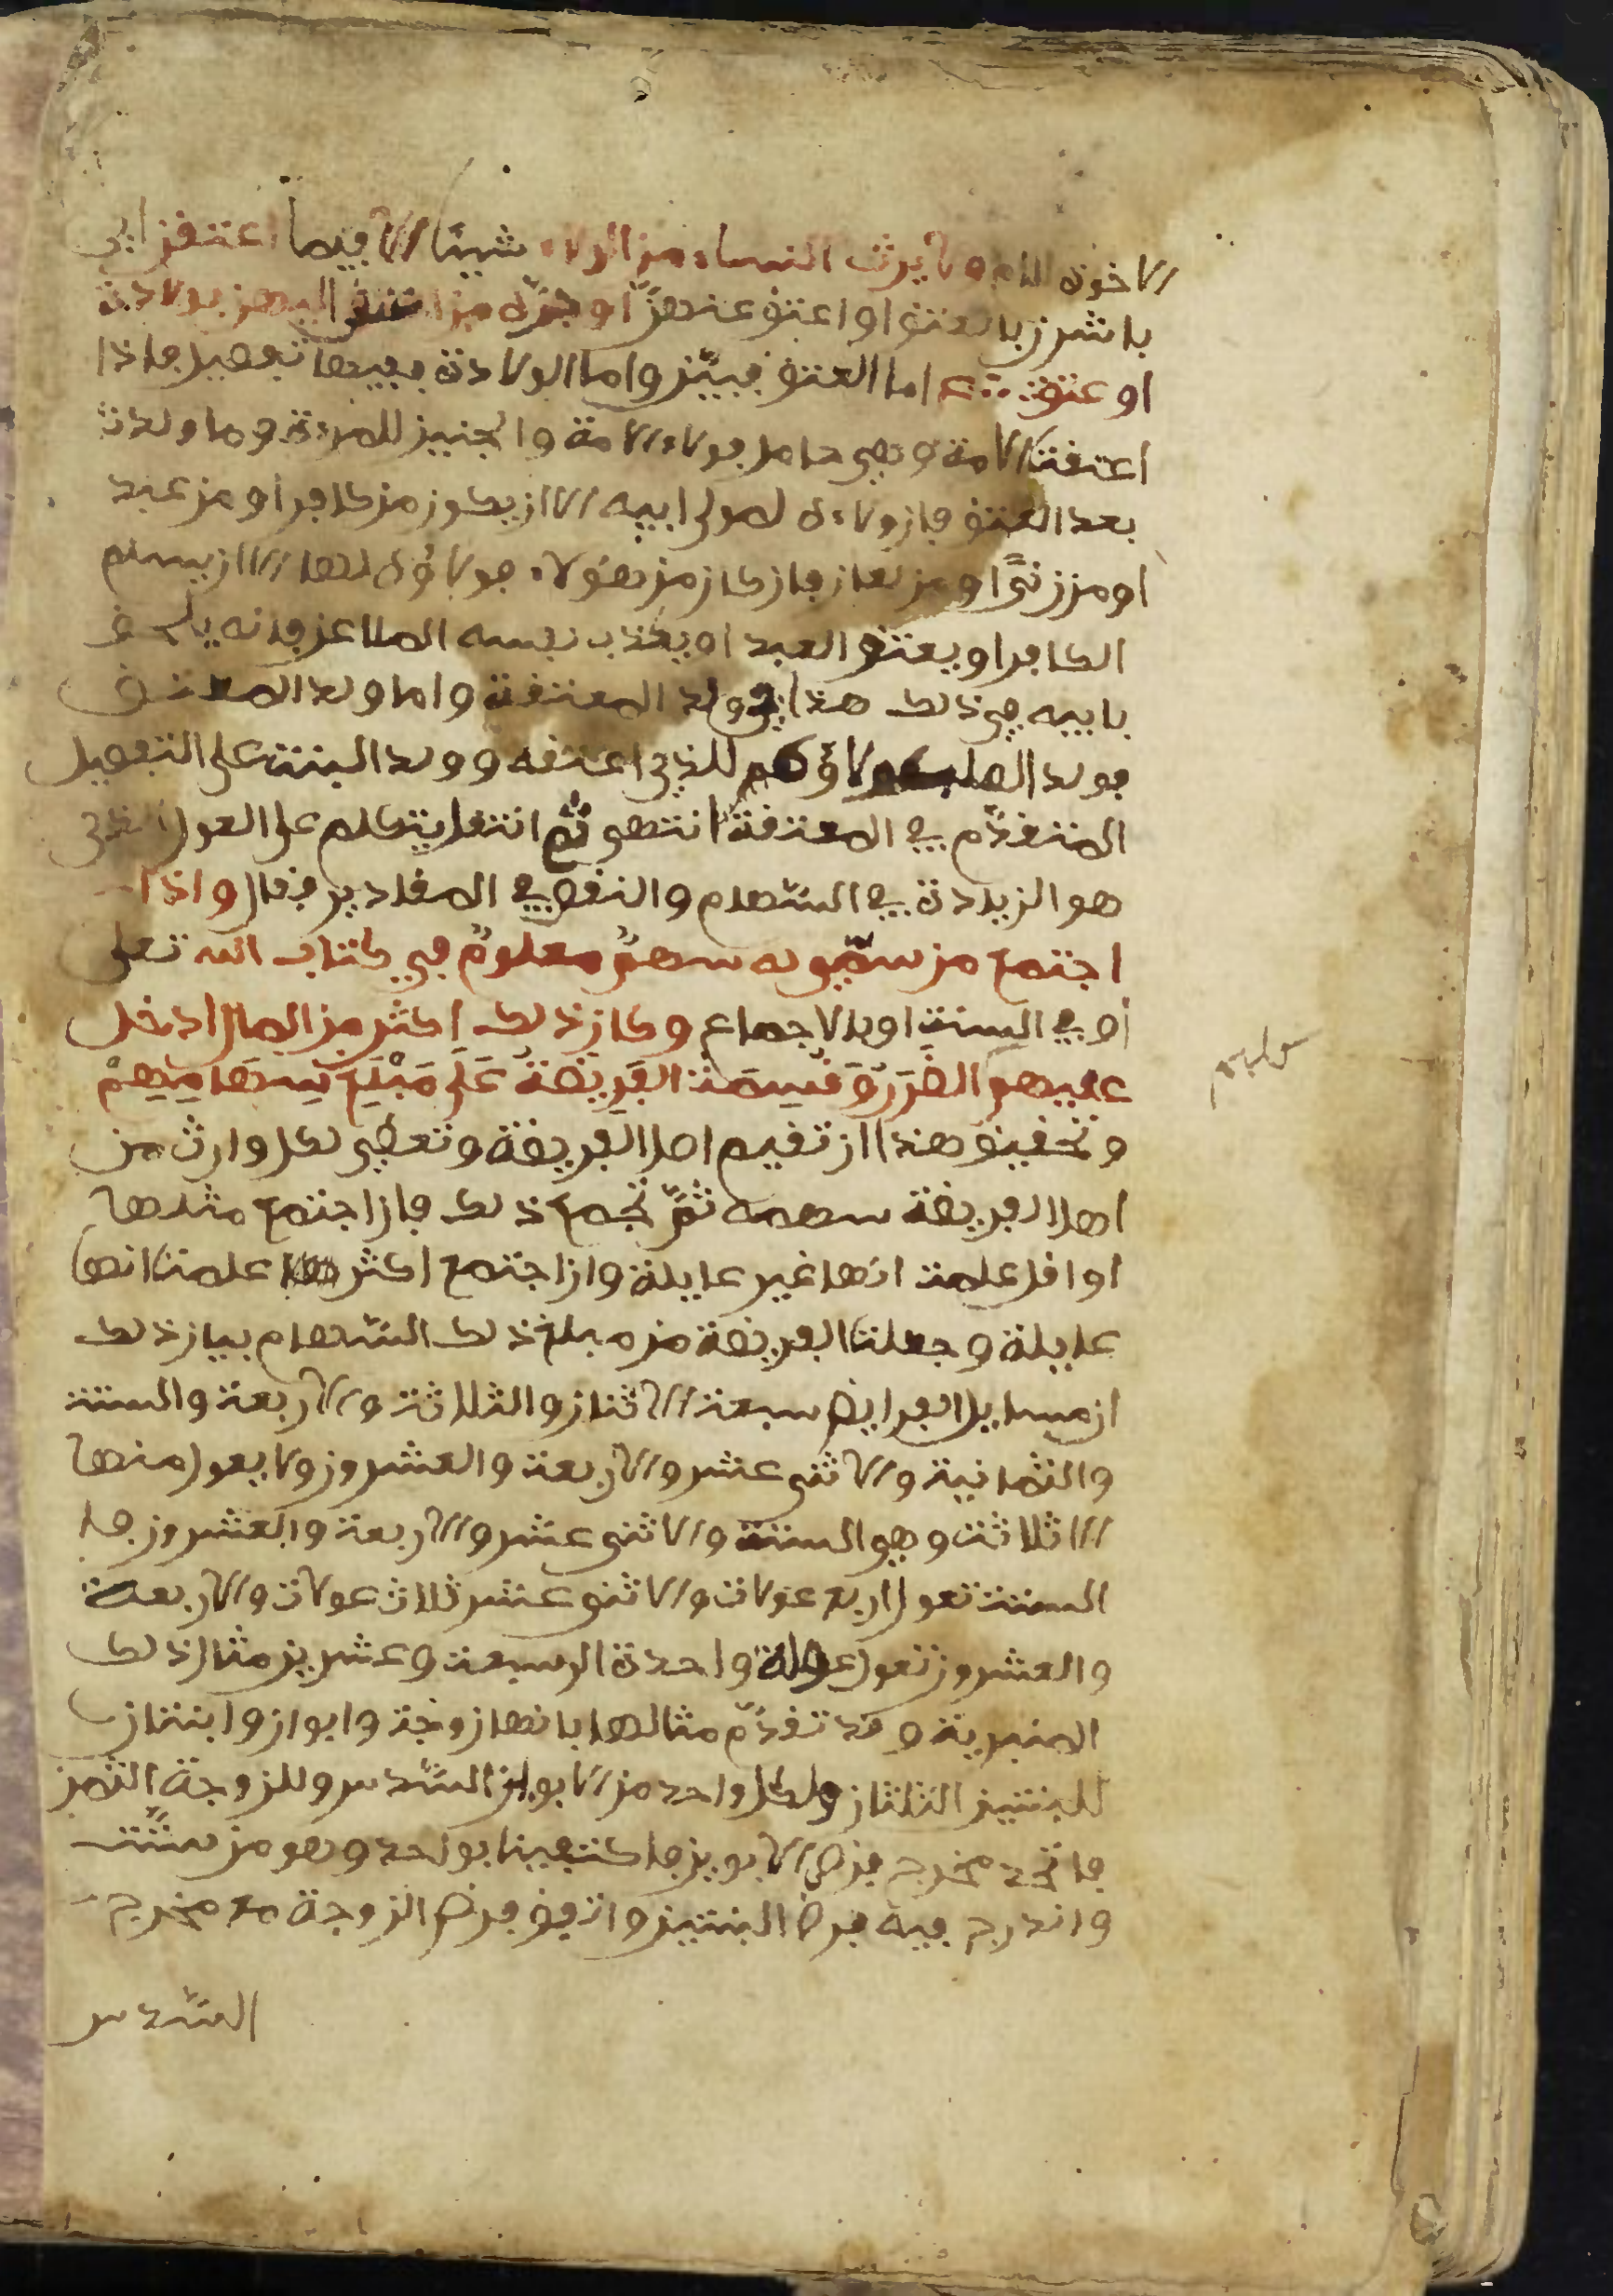 الاخوة للام ولا يرث النساء من الولاء شيئا الا فيما اعتقن اي
باشرن بالعتق او اعتق عنهن او جره من اعتقن اليهن بولادة
او عتق اما العتق فبين واما الولادة ففيها تفصيل فاذا
اعتقت الامة وهي حامل فولاء الامة والجنين للمرءة وما ولدت
بعد العتق فان ولاءه لمولى ابيه الا ان يكون من كافر او من عبد
او من زنى او من لعان فان كان من هؤلاء فولاؤه لها الا ان يسلم
الكافر او يعتق العبد او يكذب نفسه الملاعن فانه يلحق
بابيه في ذلك هذا في ولد المعتقة واما ولد المعتق
فولد الصلب ولاؤهم للذي اعتقه وولد البنت على التفصيل
المتقدم في المعتقة انتهى ثم انتقل يتكلم على العول الذي
هو الزيادة في السهام والنقص في المقادير فقال واذا
اجتمع من سمي له سهم معلوم في كتاب الله تعلى
او في السنة او بالاجماع وكان ذلك اكثر من المال ادخل
عليهم الضَّرَرُ وَقُسِمَتْ الفَرِيضَةُ عَلَى مَبْلَغِ سِهَامِهِمْ
وتحقيق هذا ان تقيم اصل الفريضة وتعطي لكل وارث من
اهل الفريضة سهمه ثم تجمع ذلك فان اجتمع مثلها
او اقل علمت انها غير عايلة وان اجتمع اكثر علمت انها
عايلة وجعلت الفريضة من مبلغ ذلك السهام بيان ذلك
ان مسايل الفرايض سبعة الاثنان والثلاثة والاربعة والستة
والثمانية والاثنى عشر والاربعة والعشرون ولا يعول منها
الا ثلاثة وهي الستة والاثنى عشر والاربعة والعشرون فا
الستة تعول اربع عولات والاثنى عشر ثلاث عولات والاربعة
والعشرون تعول عولة واحدة الى سبعة وعشرين مثال ذلك
المنبرية وقد تقدم مثالها بانها زوجة وابوان وابنتان
للبنتين الثلثان ولكل واحد من الابوين السدس وللزوجة الثمن
فاتحد مخرج فرض الابوين فاكتفينا بواحد وهو من ستة
واندرج فيه فرض البنتين واتفق فرض الزوجة مع مخرج
السدس